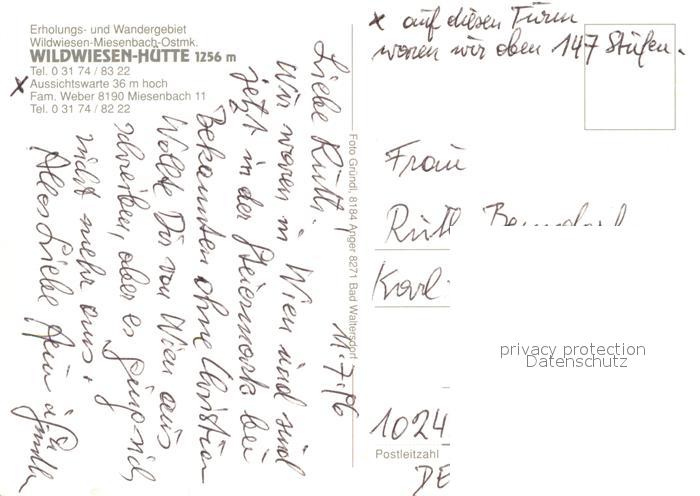 Erholungs- und Wandergebiet
Wildwiesen-Miesenbach-Ostmk.
WILDWIESEN-HÜTTE 1256 m
Tel. 0 31 74 / 83 22
x Aussichtswarte 36 m hoch
Fam. Weber 8190 Miesenbach 11
Tel. 0 31 74 / 82 22
11.7.96
Liebe Ruth!
Wir waren in Wien und sind
jetzt in der Steiermark bei
Bekannten ohne Christian
Wollte Dir von Wien aus
schreiben, aber es ging sich
nicht mehr aus.
Alles Liebe
Foto Gründl, 8184 Anger 8271 Bad Waltersdorf
x auf diesen Turm
waren wir oben 147 Stufen.
Frau
Ruth
Karl
1024
Postleitzahl
DE
privacy protection
Datenschutz